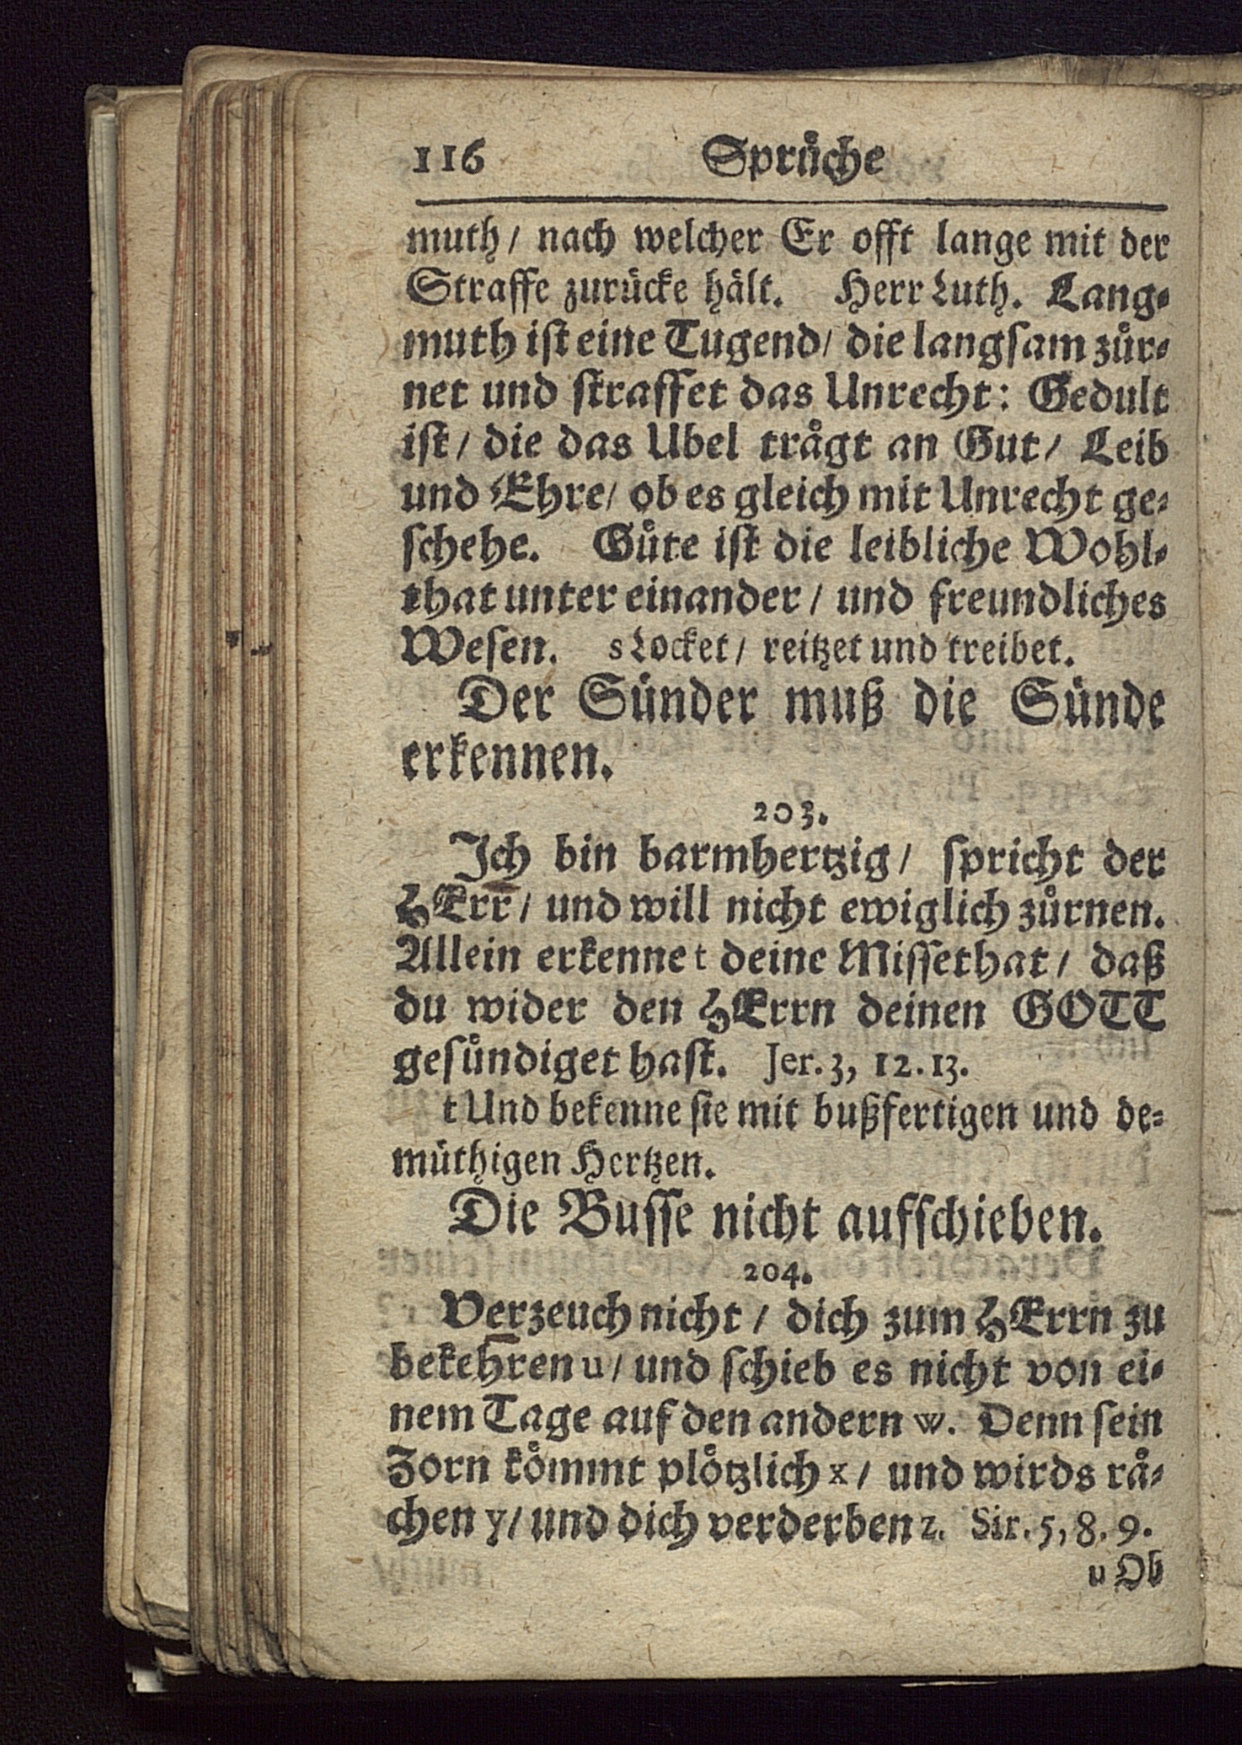 116 Sprüche
muth/ nach welcher Er offt lange mit der
Straffe zurücke hält. Herr Luth. Lang-
muth ist eine Tugend/ die langsam zür-
net und straffet das Unrecht: Gedult
ist/ die das Ubel trägt an Gut/ Leib
und Ehre/ ob es gleich mit Unrecht ge-
schehe. Güte ist die leibliche Wohl-
that unter einander/ und freundliches
Wesen. s Locket/ reitzet und treibet.
Der Sünder muß die Sünde
erkennen.
203.
Ich bin barmhertzig/ spricht der
HErr/ und will nicht ewiglich zürnen.
Allein erkenne t deine Missethat/ daß
du wider den HErrn deinen GOTT
gesündiget hast. Jer. 3, 12. 13.
t Und bekenne sie mit bußfertigen und de-
müthigen Hertzen.
Die Busse nicht aufschieben.
204.
Verzeuch nicht/ dich zum HErrn zu
bekehren u/ und schieb es nicht von ei-
nem Tage auf den andern w. Denn sein
Zorn kömmt plötzlich x/ und wirds rä-
chen y/ und dich verderben z. Sir. 5, 8. 9.
u Ob